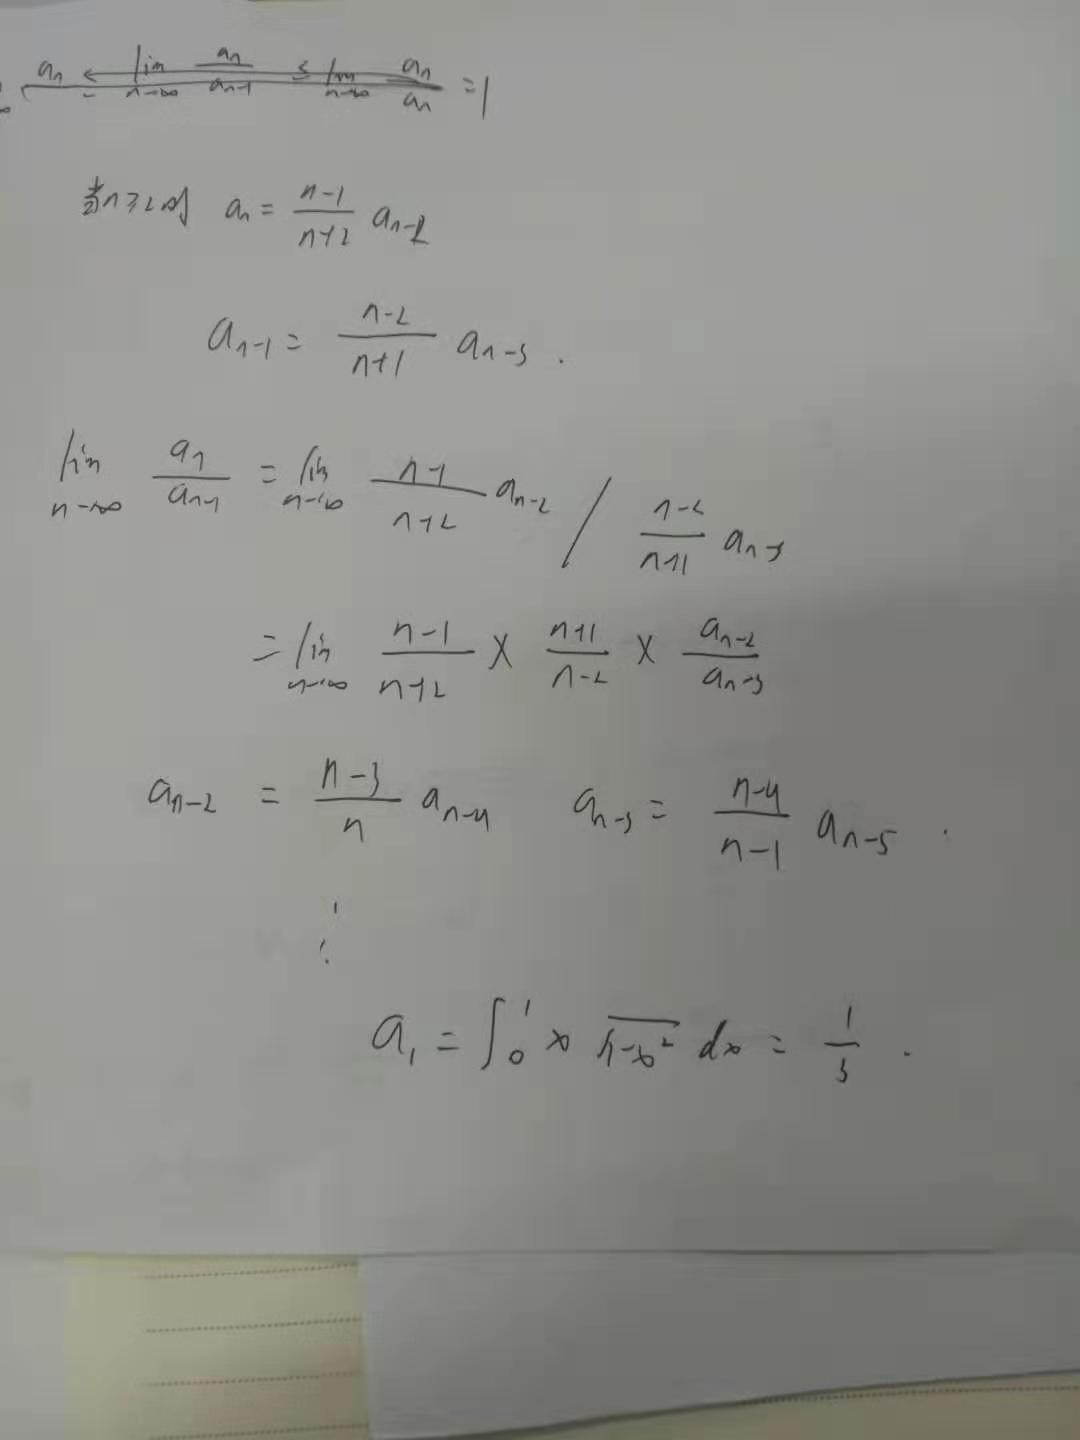 aₙ ≤ lim n→∞ aₙ/aₙ₋₁ ≤ lim n→∞ aₙ/aₙ = 1
当n≥2时 aₙ = (n-1)/(n+2) aₙ₋₂
aₙ₋₁ = (n-2)/(n+1) aₙ₋₃ .
lim n→∞ aₙ/aₙ₋₁ = lim n→∞ (n-1)/(n+2) aₙ₋₂ / (n-2)/(n+1) aₙ₋₃
= lim n→∞ (n-1)/(n+2) × (n+1)/(n-2) × aₙ₋₂/aₙ₋₃
aₙ₋₂ = (n-3)/n aₙ₋₄ aₙ₋₃ = (n-4)/(n-1) aₙ₋₅ .
⋮
a₁ = ∫₀¹ x √(1-x²) dx = 1/3 .